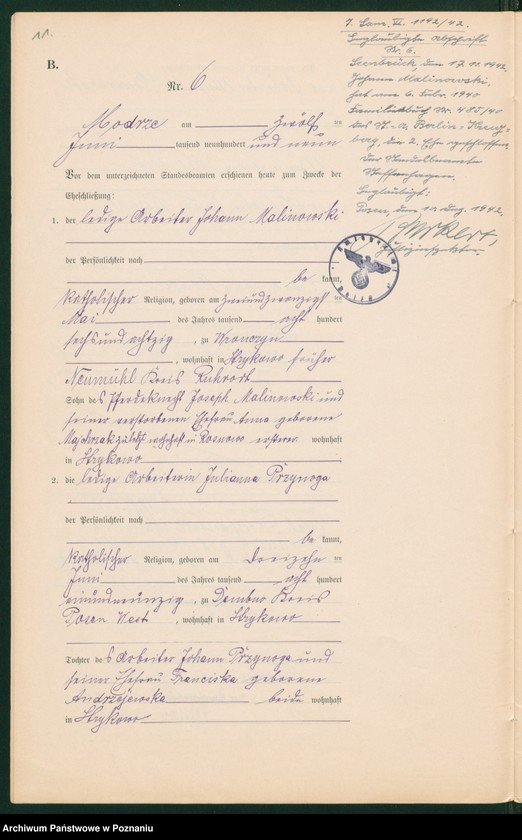 11.
B.
Nr. 6
7. Sam. VI. 1192/42.
Beglaubigte Abschrift
Nr. 6.
den 17.11.1942.
Johann Malinowski
hat am 6. Febr. 1940
Familienbuch Nr. 485/40
des St. A. Berlin-Kreuz-
berg, die 2. Ehe geschlossen
Der Standesbeamte
Beglaubigt:
Posen, den 10. Aug. 1942.
Justizinspektor.
Modrze am zwölf ten
Juni tausend neunhundert und neun
Vor dem unterzeichneten Standesbeamten erschienen heute zum Zwecke der
Eheschließung:
1. der ledige Arbeiter Johann Malinowski
der Persönlichkeit nach
be kannt,
katholischer Religion, geboren am zweiundzwanzigsten
Mai des Jahres tausend acht hundert
sechsundachtzig, zu Wronczyn
, wohnhaft in Strykowo früher
Neumühl Kreis Ruhrort
Sohn des Pferdeknecht Joseph Malinowski und
seiner verstorbenen Ehefrau Anna geborene
Majchrzak zuletzt wohnhaft in Rosnowo ersterer wohnhaft
in Strykowo
2. die ledige Arbeiterin Julianna Przynoga
der Persönlichkeit nach
be kannt,
katholischer Religion, geboren am dreizehn ten
Juni des Jahres tausend acht hundert
einundneunzig, zu Dembno Kreis
Posen West, wohnhaft in Strykowo
Tochter des Arbeiter Johann Przynoga und
seiner Ehefrau Franciska geborene
Andrzejewska beide wohnhaft
in Strykowo
Archiwum Państwowe w Poznaniu